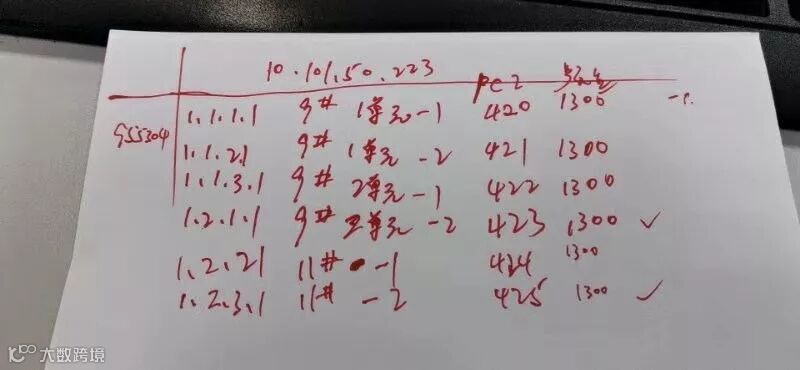 10.101.50.223 pc2
955304 1.1.1.1 9# 1单元-1 420 1300
1.1.2.1 9# 1单元-2 421 1300
1.1.3.1 9# 2单元-1 422 1300
1.2.1.1 9# 2单元-2 423 1300 ✓
1.2.21 11# -1 424 1300
1.2.3.1 11# -2 425 1300 ✓
大数跨境